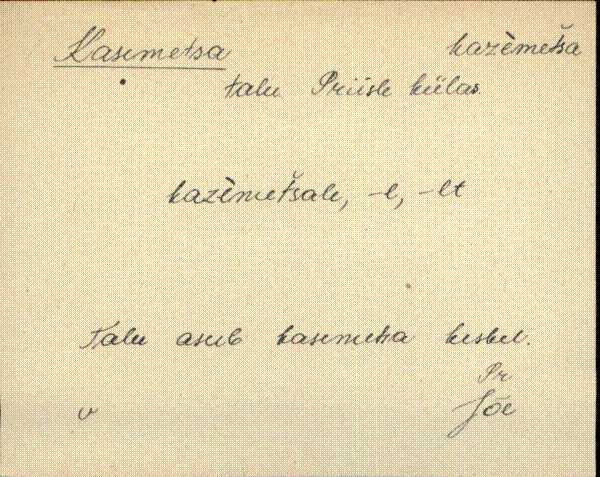 Kasemetsa kazèmetša
talu Priisle külas.
kazèmetšale, -l, -lt
Talu asub kasemetsa keskel.
Pr
v Jõe